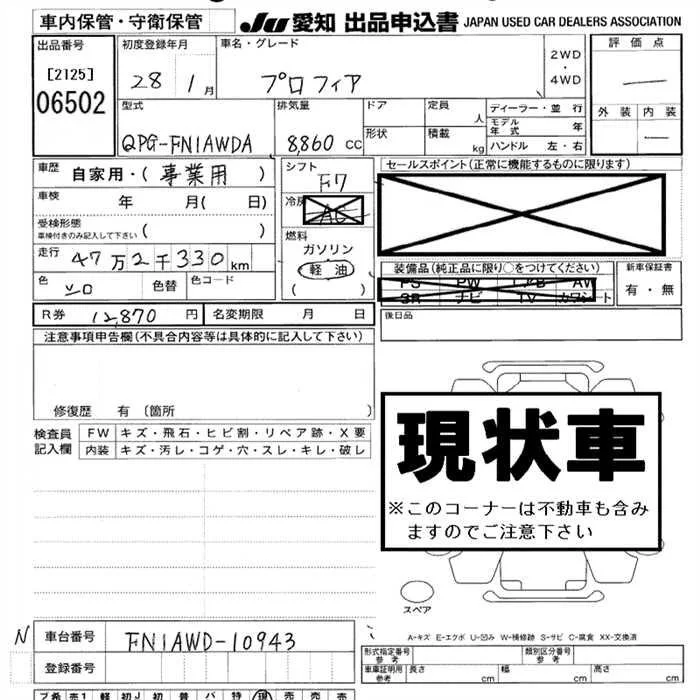 車内保管・守衛保管
JU 愛知 出品申込書 JAPAN USED CAR DEALERS ASSOCIATION
出品番号
[2125]
06502
初度登録年月
28 1月
車名・グレード
プロフィア
2WD
・
4WD
評価点
外装 内装
型式
QPG-FN1AWDA
排気量
8,860 CC
ドア
形状
定員
人
積載
kg
ディーラー・並行
モデル年式 年
ハンドル 左・右
車歴
自家用・(事業用)
車検 年 月( 日)
受検形態
車検付きのみ記入して下さい ( )
走行 47万2千330km
色 シロ 色替 色コード
シフト
F7
冷房 AC
燃料
ガソリン
軽油
( )
セールスポイント(正常に機能するものに限ります)
装備品(純正品に限り○をつけてください)
PS PW エアB AW
SR ナビ TV カワシート
新車保証書
有・無
R券 12,870 円 名変期限 月 日
後日品
注意事項申告欄(不具合内容等は具体的に記入して下さい)
修復歴 有〔箇所 〕
検査員記入欄
FW キズ・飛石・ヒビ割・リペア跡・X要
内装 キズ・汚レ・コゲ・穴・スレ・キレ・破レ
現状車
※このコーナーは不動車も含み
ますのでご注意下さい
スペア
A-キズ E-エクボ U-凹み W-補修跡 S-サビ C-腐食 XX-交換済
N
車台番号 FN1AWD-10943
登録番号
形式指定番号 参考
類別区分番号 参考
車庫証明用 参考 長さ cm 幅 cm 高さ cm